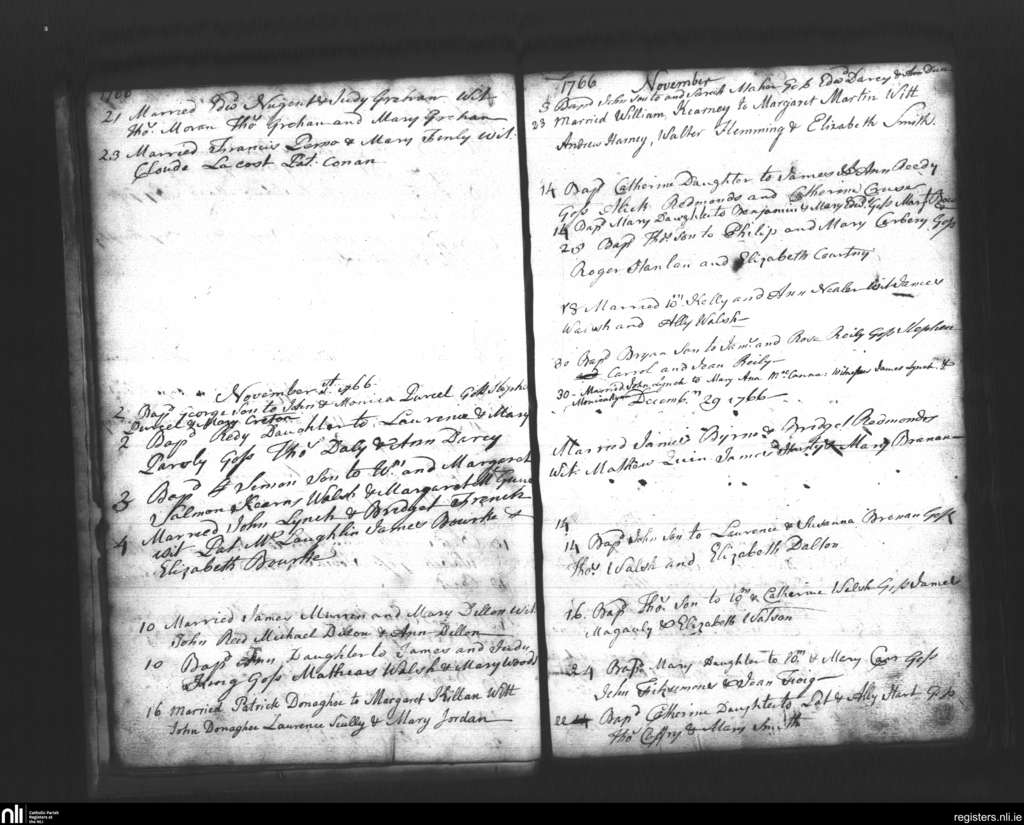 1766
21 Married Edwd Nugent & Judy Grehan Wit
Thos. Moran Thos Grehan and Mary Grehan
23 Married Francis & Mary Fenly Wit.
Cloude Lacost Pat. Conan
November 1st 1766
2 Bapd George Son to John & Monica Purcel Goss Steph
Purcel & Mary Creton
2 Bapd Redy Daughter to Laurence & Mary
Goss Thos Daly & Ann Darcy
3 Bapd Simon Son to Wm and Margaret
Salmon Kearns Walsh & Margaret
4 Married John Lynch & Bridget French
wit Pat. Mc Laughlin James Bourke &
Elizabeth Bourke
10 Married James Murren and Mary Dillon Wit
John Reed Michael Dillon & Ann Dillon
10 Bapd Ann Daughter to James and Judy
King Goss Mathias Walsh & Mary Woods
16 Married Patrick Donaghoe to Margaret Killean Witt
John Donaghoe Laurence Scully & Mary Jordan
1766 November
5 Bapd John Son to and Sarah Maher Goss Edwd Darcy & Ann
23 Married William Kearney to Margaret Martin Witt
Andrew Harney, Walter Flemming & Elizabeth Smith.
14 Bapd Catherine Daughter to James & Ann Reedy
Goss Mich Redmonds and Catherine Cruse
14 Bapd Mary Daughter to Benjamin & Mary Goss
25 Bapd Thos Son to Philip and Mary Corbery Goss
Roger Hanlan and Elizabeth Courtny
28 Married Wm Kelly and Ann Nealer Wit James
Walsh and Ally Walsh
30 Bapd Bryan Son to Jams and Rose Reily Goss Stephen
Carrol and Jean Reily
30 Married John Lynch to Mary Ann McCanna: Witness James Lynch &
Decembr 29 1766
Married James Byrne & Bridget Redmonds
Wit. Mathew Quin James & Mary Branan
14
14 Bapd John Son to Laurence & Susanna Brenan Goss
Thos Walsh and Elizabeth Dalton
16. Bapd Thos Son to Wm & Catherine Walsh Goss James
Magauly & Elizabeth Watson
24 Bapd Mary Daughter to Wm & Mary Carr Goss
John Fitzsemons & Jean
22 Bapd Catherine Daughter to Pat & Ally Hart Goss
Thos Caffry & Mary Smith
nli
Catholic Parish
Registers at
the NLI
registers.nli.ie